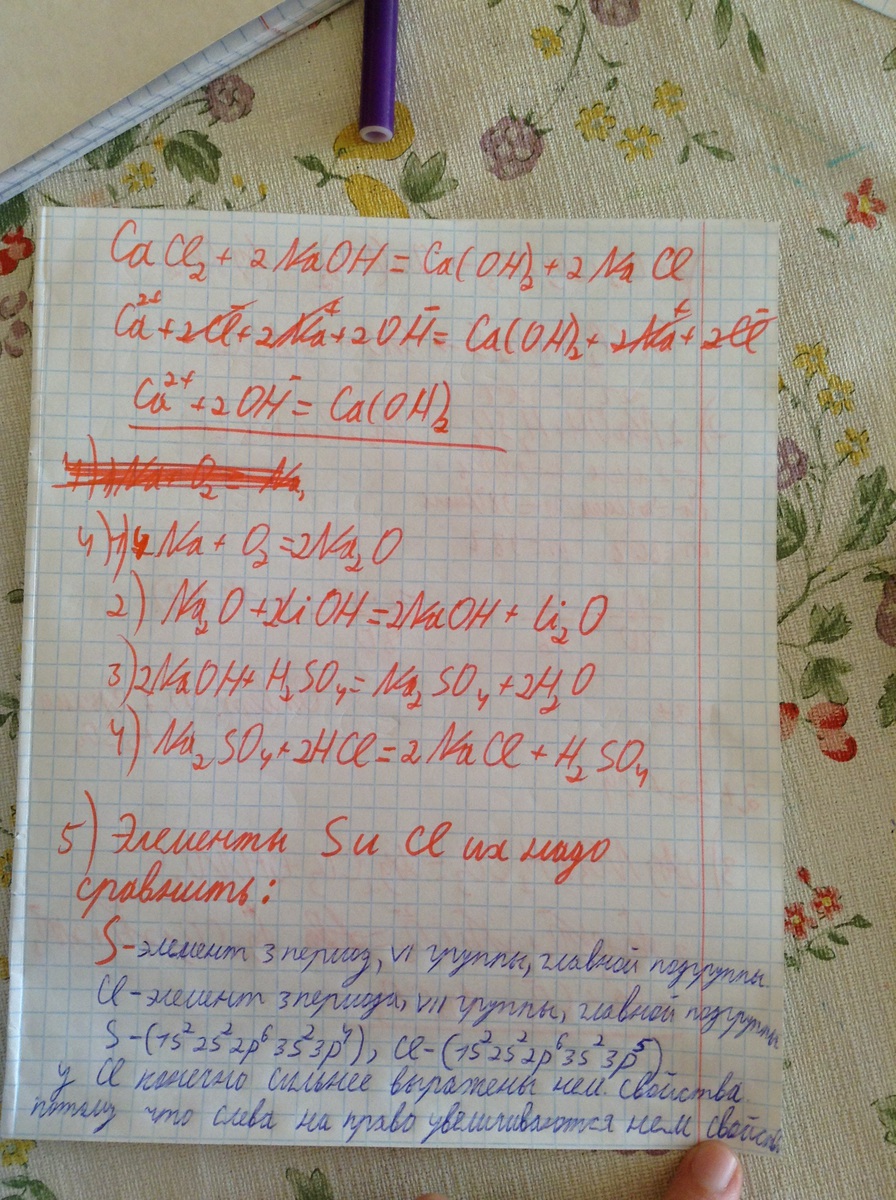 CaCl₂ + 2NaOH = Ca(OH)₂ + 2NaCl
Ca²⁺ + 2Cl⁻ + 2Na⁺ + 2OH⁻ = Ca(OH)₂ + 2Na⁺ + 2Cl⁻
Ca²⁺ + 2OH⁻ = Ca(OH)₂
4) 1) Na + O₂ = Na₂
4) 1) 4Na + O₂ = 2Na₂O
2) Na₂O + 2LiOH = 2NaOH + Li₂O
3) 2NaOH + H₂SO₄ = Na₂SO₄ + 2H₂O
4) Na₂SO₄ + 2HCl = 2NaCl + H₂SO₄
5) Элементы S и Cl их надо
сравнить:
S - элемент 3 период, VI группы, главной подгруппы
Cl - элемент 3 периода, VII группы, главной подгруппы
S - (1s²2s²2p⁶3s²3p⁴), Cl - (1s²2s²2p⁶3s²3p⁵)
у Cl конечно сильнее выражены нем. свойства
потому что слева на право увеличиваются нем свойств